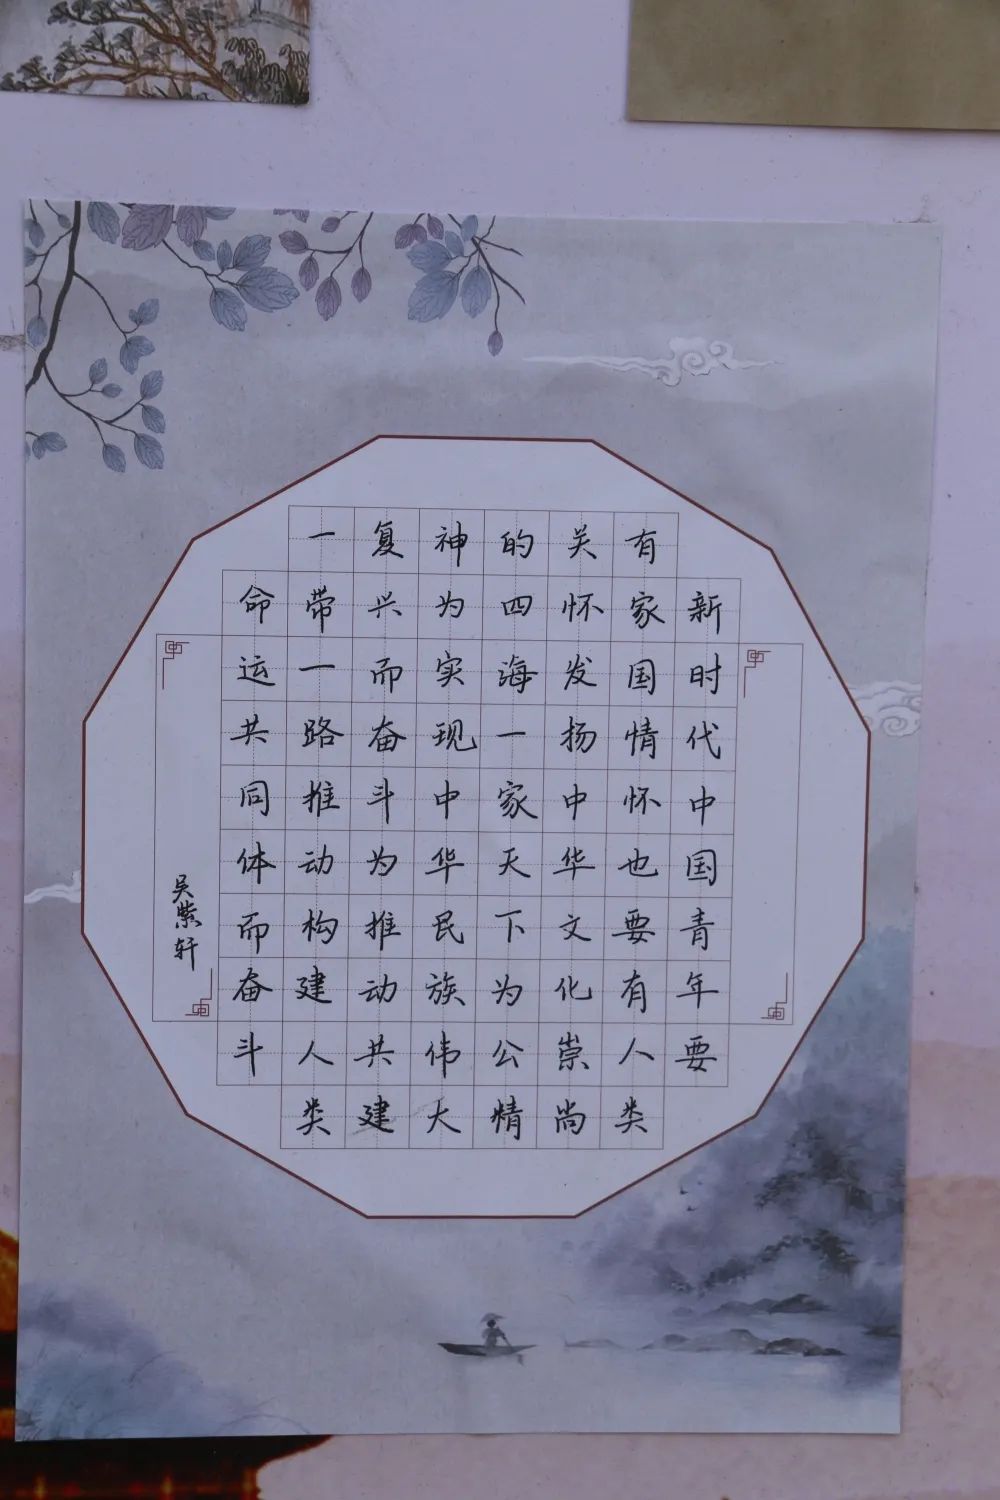 新时代中国青年要
有家国情怀也要有人类
关怀发扬中华文化崇尚
的四海一家天下为公情
神为实现中华民族伟大
复兴而奋斗为推动共建
一带一路推动构建人类
命运共同体而奋斗
吴紫轩